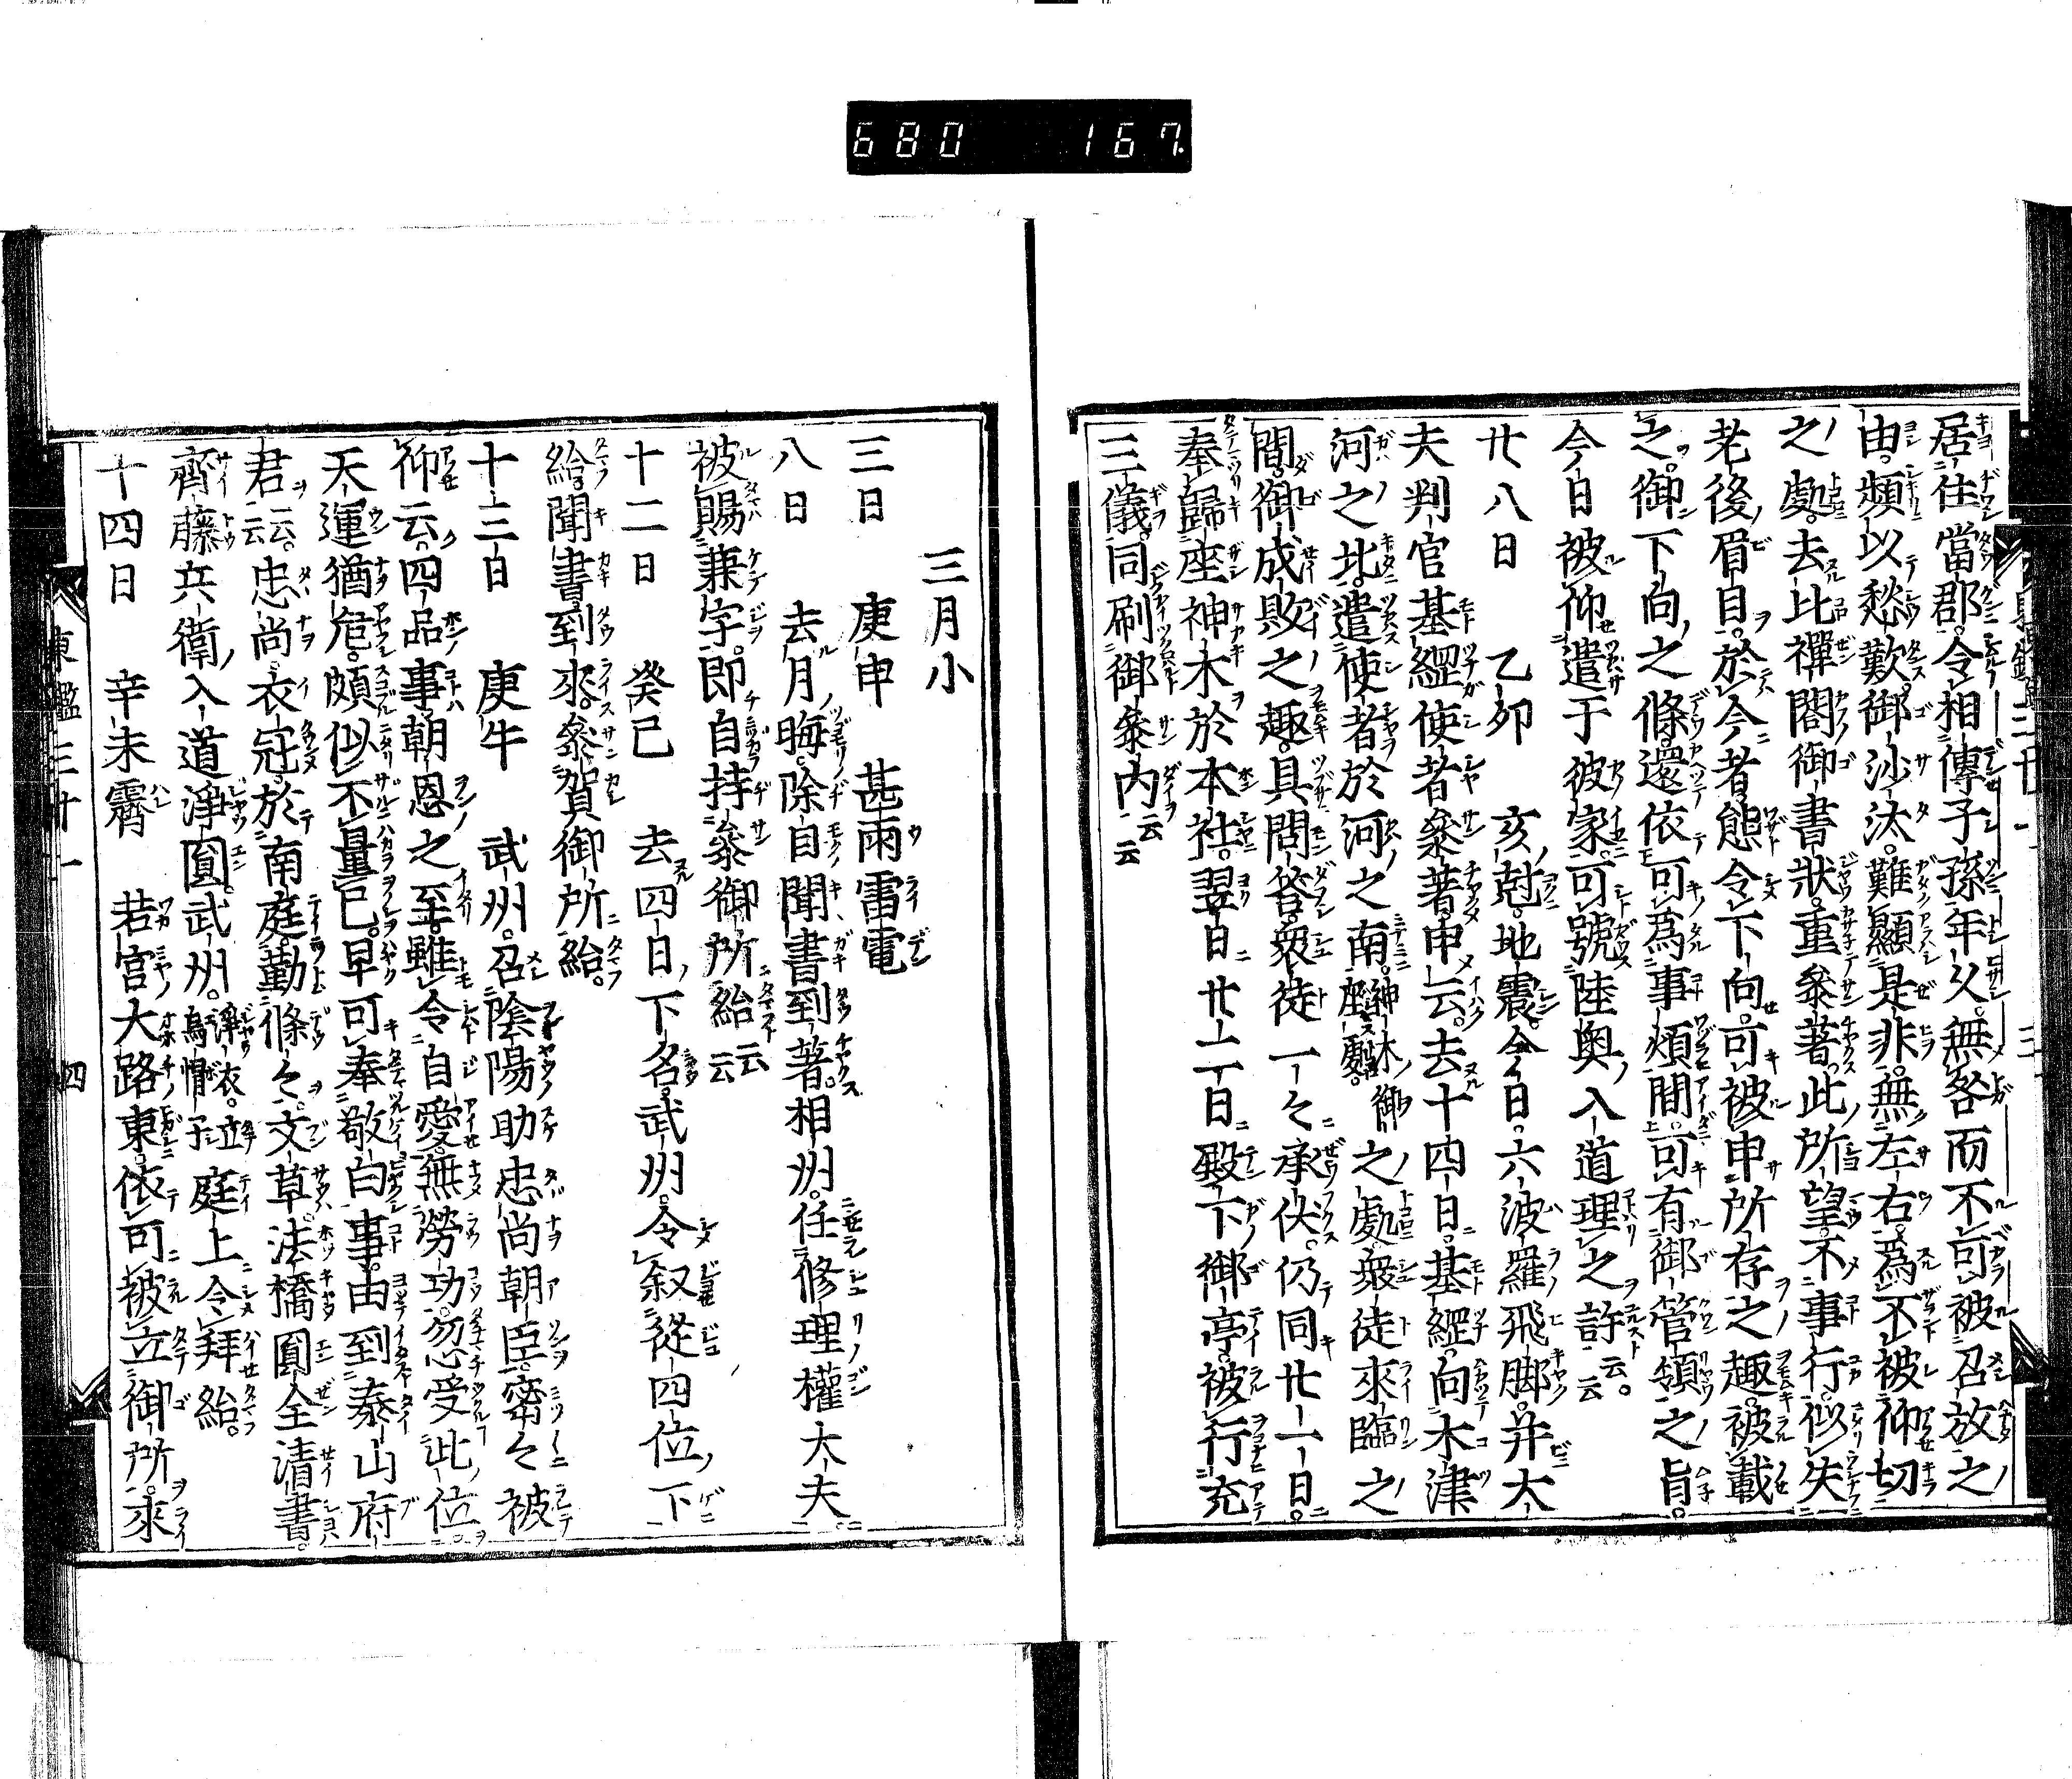 680 167
居住當郡令相傳子孫年久無咎而不可被召放之
由頻以愁歎御沙汰難顯是非無左右爲不被仰切
之處去比禪閤御書狀重參著此所望不事行似失
老後眉目於今者態令下向可被申所存之趣被載
之御下向之條還依可爲事煩間可有御管領之旨
今日被仰遣于彼家可號陸奧入道理之許云云
廿八日 乙卯 亥尅地震今日六波羅飛脚并大
夫判官基綱使者參著申云去十四日基綱向木津
河之北遣使者於河之南神木御座處之處衆徒來臨之
間御成敗之趣具問答衆徒一一々承伏仍同廿一日
奉歸座神木於本社翌日廿二日殿下御亭被行充
三儀同刷御粂內云云
三月小
三日 庚申 甚雨雷電
八日 去月晦除自聞書到著相州任修理權大夫
被賜兼字即自持參御所給云云
十二日 癸巳 去四日下名武州令叙從四位下
給聞書到來參賀御所給
十三日 庚午 武州召陰陽助忠尚朝臣密々被
仰云四品事朝恩之至雖令自愛無勞功忽受此位
天運猶危頗似不量已早可奉敬白事由到泰山府
君云云忠尚衣冠於南庭勤條々文草法橋圓全清書
齊藤兵衛入道淨圓武州淨衣立烏帽子庭上令拜給
十四日 辛未霽 若宮大路東依可被立御所來
東鑑三十一 四